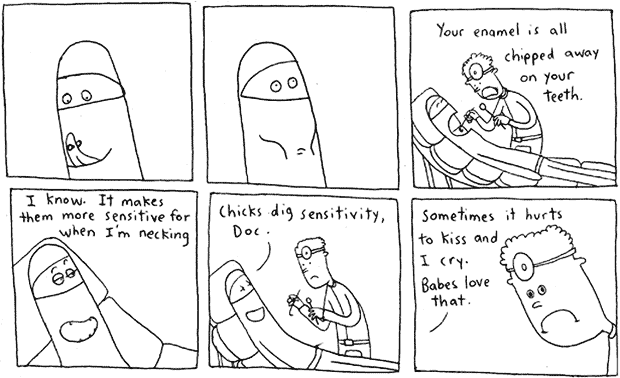 Your enamel is all
chipped away
on your
teeth.
I know. It makes
them more sensitive for
when I'm necking
Chicks dig sensitivity,
Doc.
Sometimes it hurts
to kiss and
I cry.
Babes love
that.